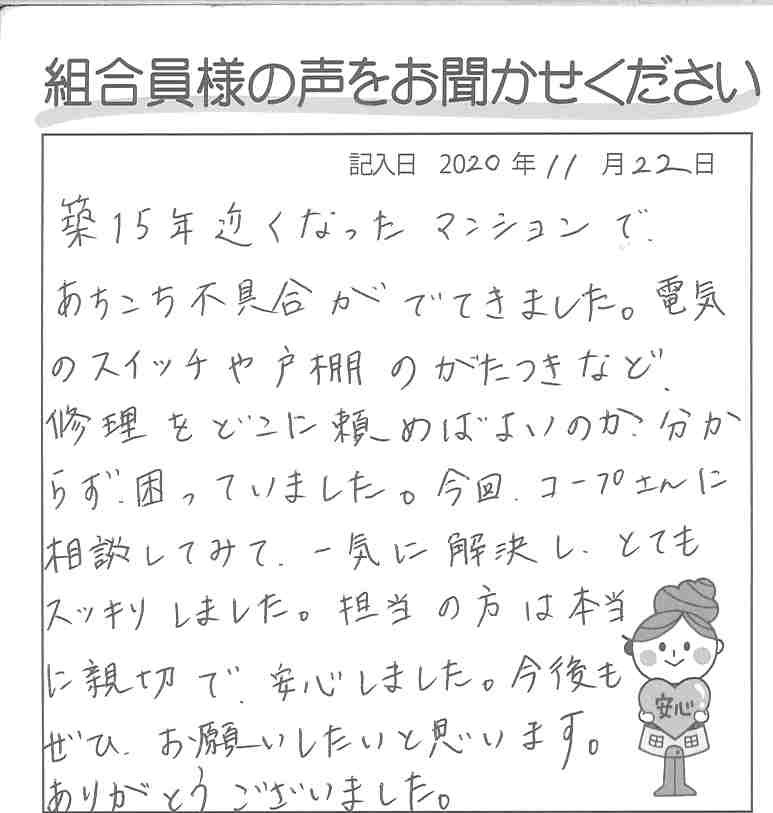 組合員様の声をお聞かせください
記入日 2020 年 11 月 22 日
築15年近くなったマンションで、
あちこち不具合がでてきました。電気
のスイッチや戸棚のがたつきなど、
修理をどこに頼めばよいのか、分か
らず、困っていました。今回、コープさんに
相談してみて、一気に解決し、とても
スッキリしました。担当の方は本当
に親切で、安心しました。今後も
ぜひ、お願いしたいと思います。
ありがとうございました。
安心